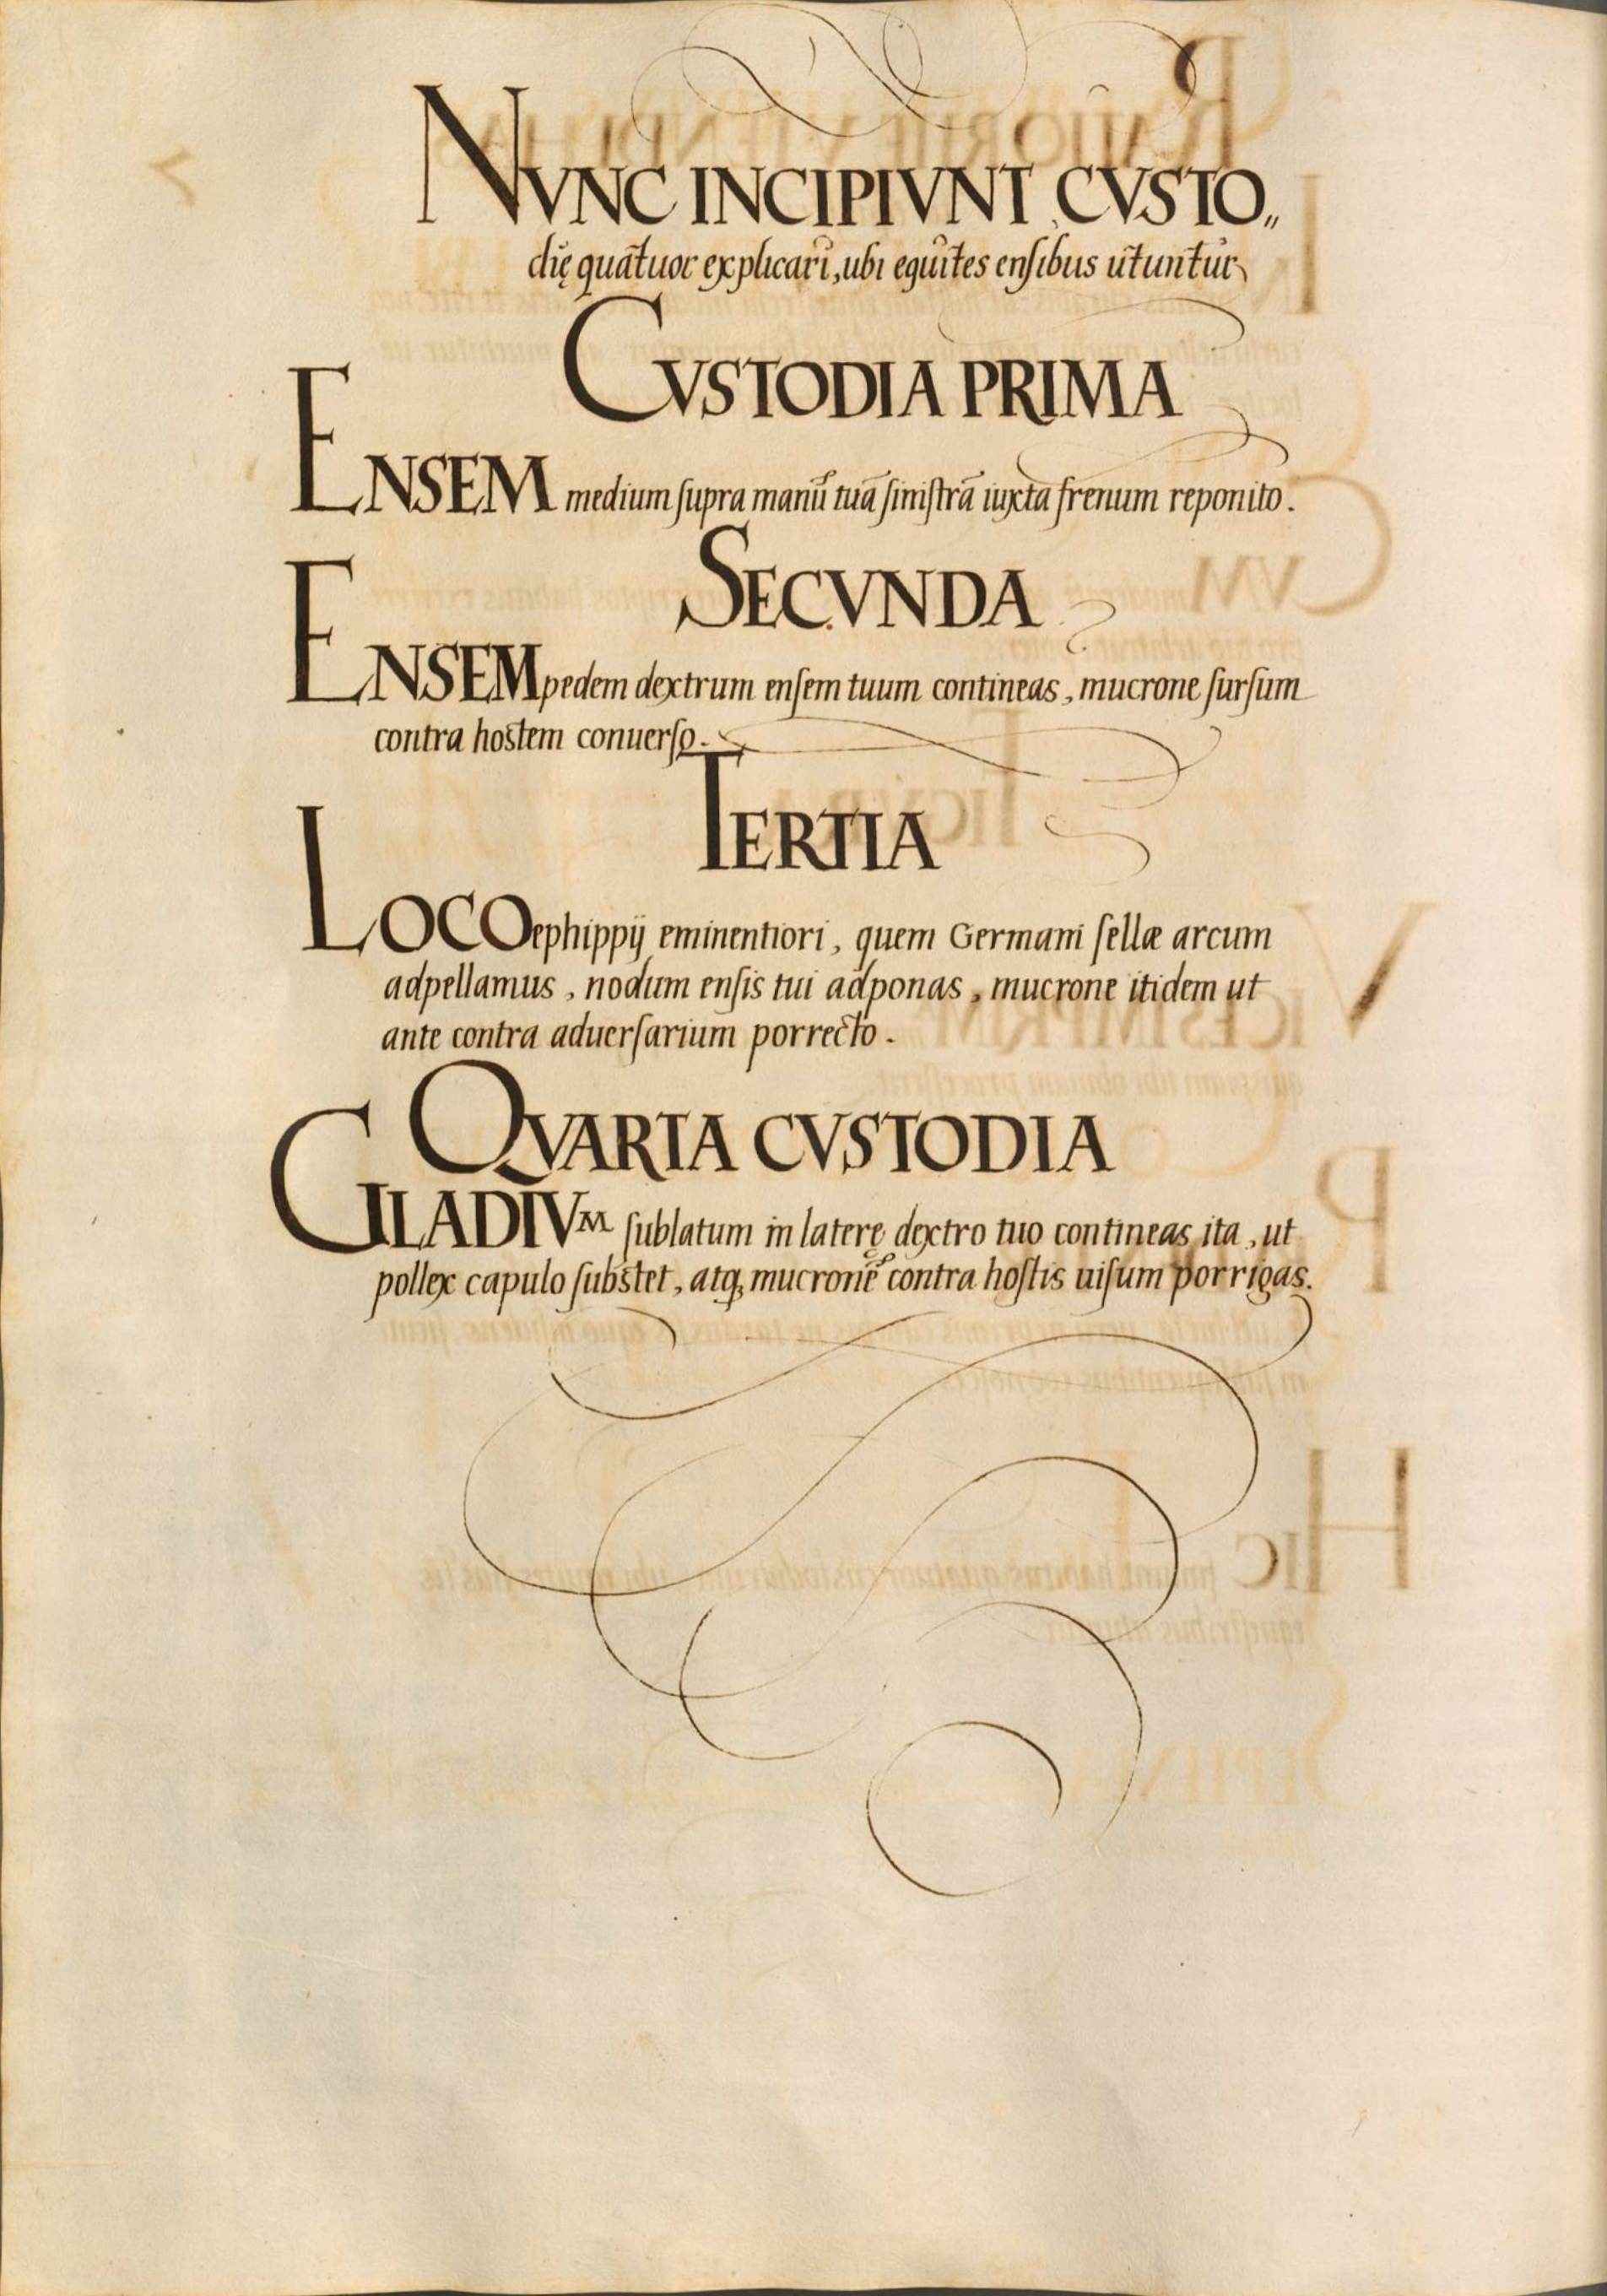 NVNC INCIPIVNT CVSTO„
dię quatuor explicari, ubi equites ensibus utuntur
CVSTODIA PRIMA
ENSEM medium supra manū tuā sinistrā iuxta frenum reponito.
SECVNDA
ENSEM pedem dextrum ensem tuum contineas, mucrone sursum
contra hostem conuerso.
TERTIA
LOCO ephippij eminentiori, quem Germani sellæ arcum
adpellamus, nodum ensis tui adponas, mucrone itidem ut
ante contra aduersarium porrecto.
QVARTA CVSTODIA
GLADIVM sublatum in laterę dextro tuo contineas ita, ut
pollex capulo substet, atq; mucronē contra hostis uisum porrigas.